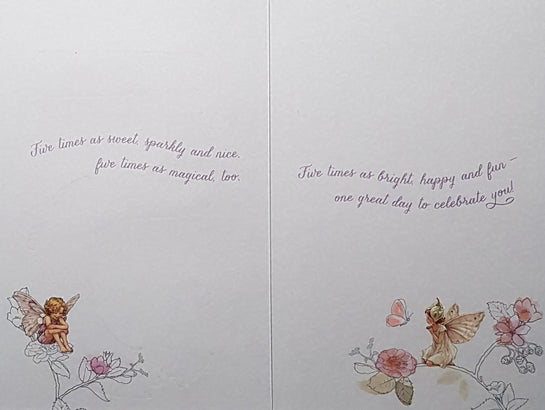 Five times as sweet, sparkly and nice,
five times as magical, too.
Five times as bright, happy and fun –
one great day to celebrate you!